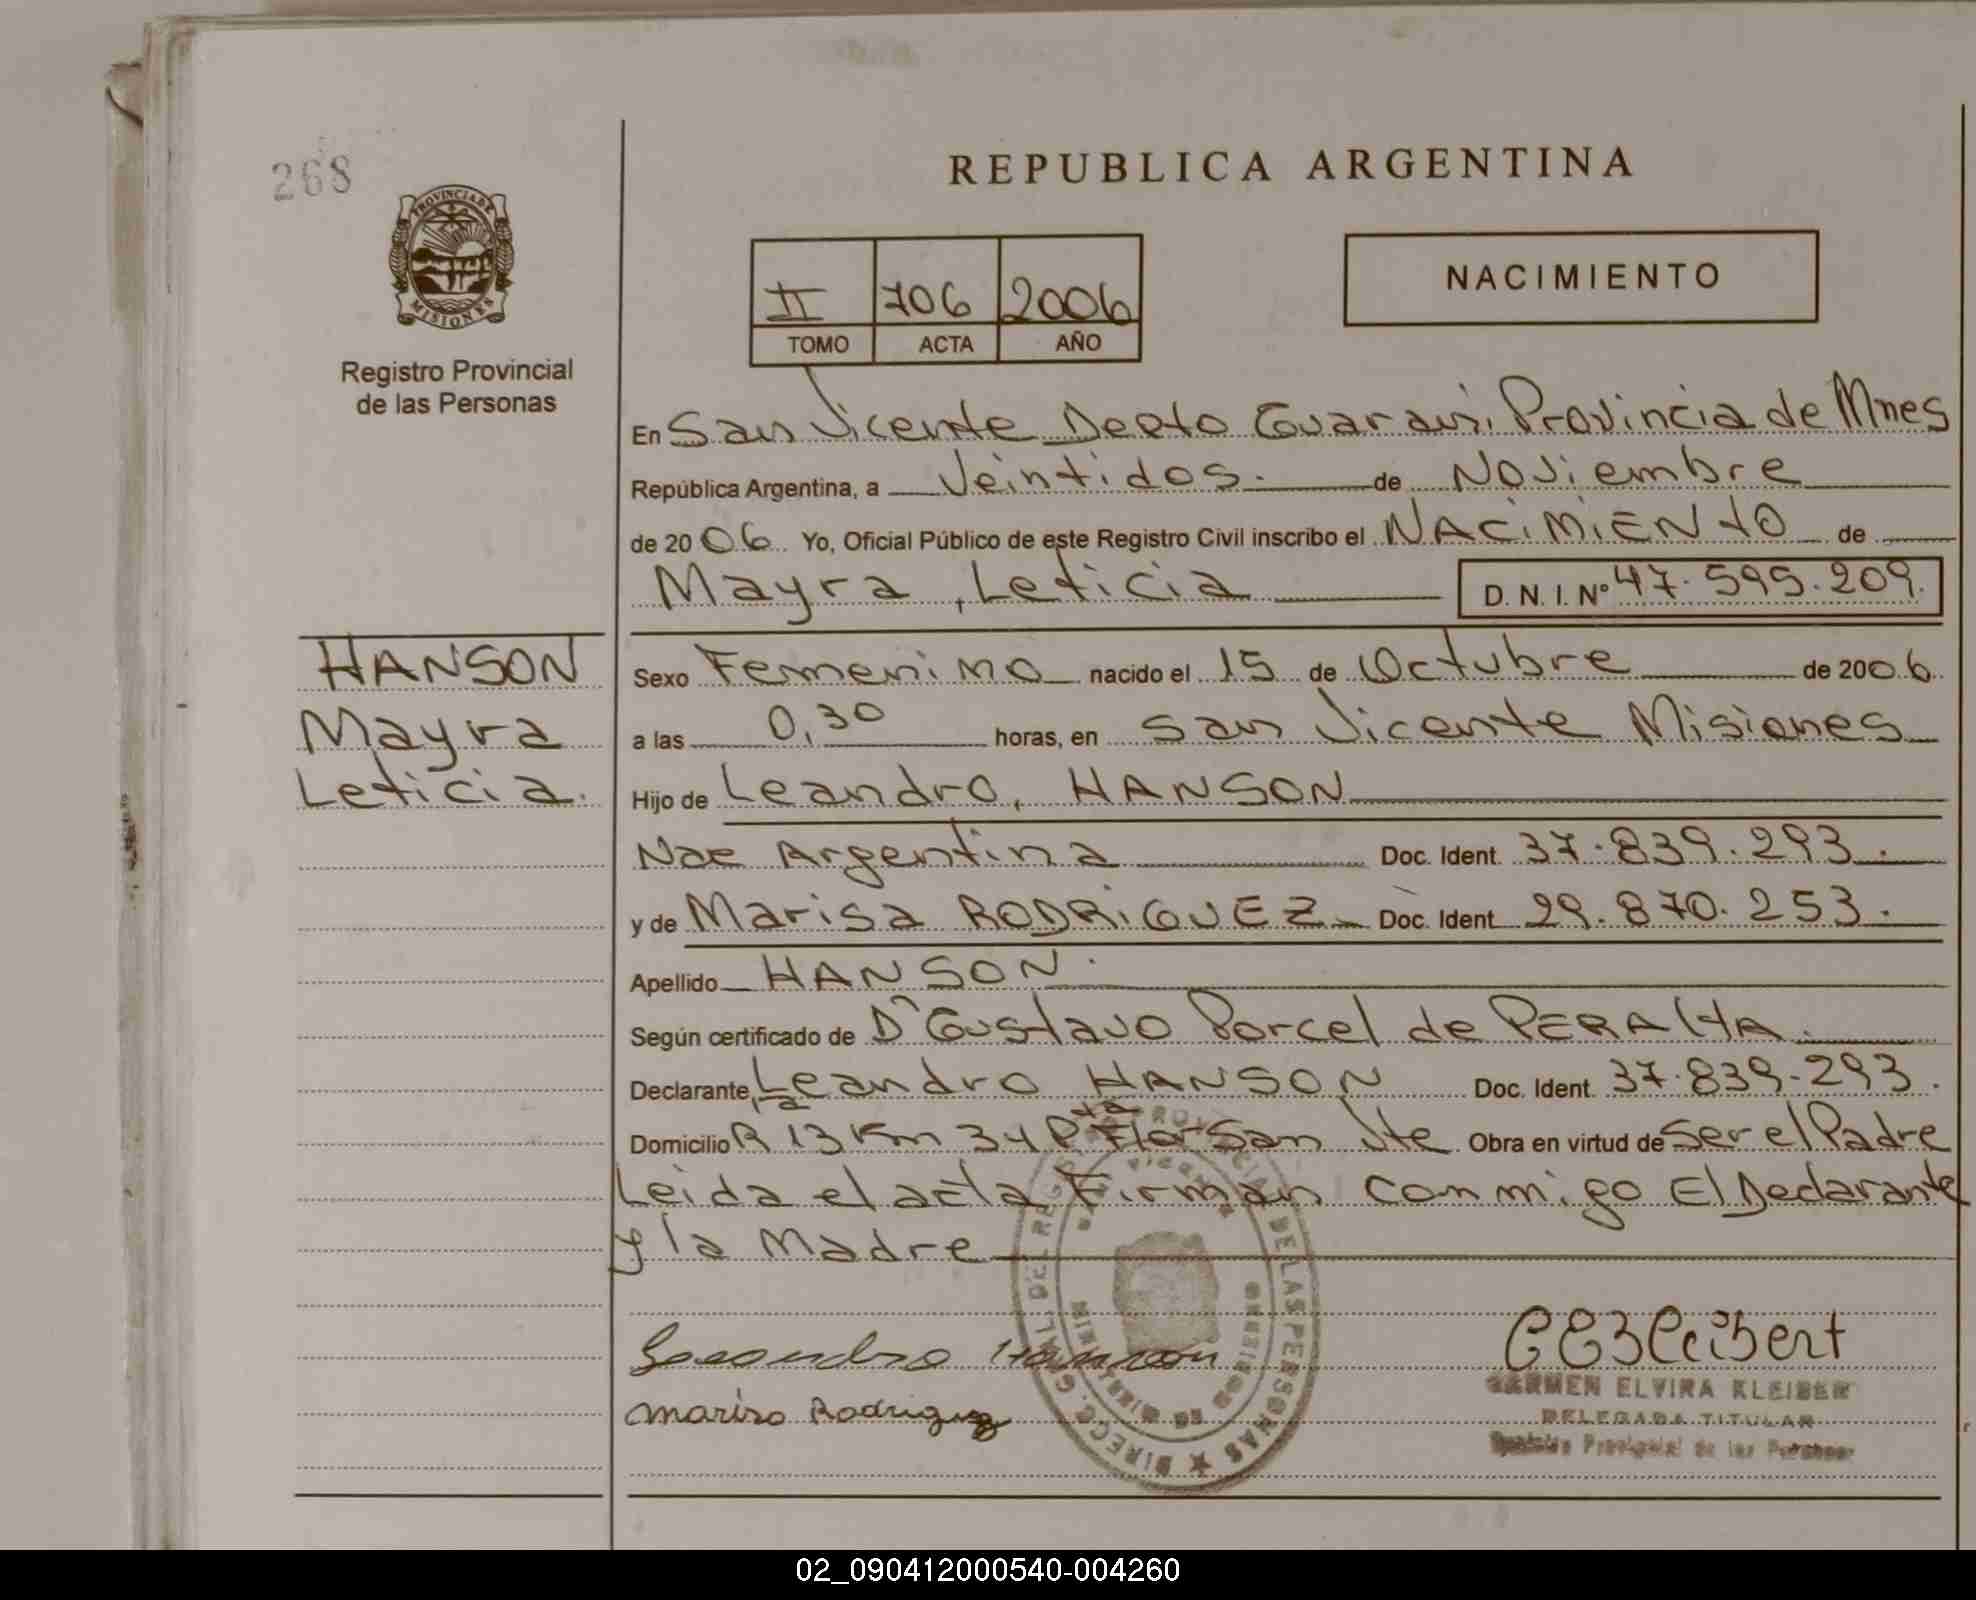 268
PROVINCIA DE
MISIONES
Registro Provincial
de las Personas
REPUBLICA ARGENTINA
II 706 2006
TOMO ACTA AÑO
NACIMIENTO
En San Vicente Depto Guarani, Provincia de Mnes
República Argentina, a Veintidos. de Noviembre
de 2006 Yo, Oficial Público de este Registro Civil inscribo el NACIMIENTO de
Mayra, Leticia D. N. I. Nº 47.595.209.
HANSON
Mayra
Leticia.
Sexo Femenino nacido el 15 de Octubre de 2006.
a las 0,30 horas, en San Vicente Misiones
Hijo de Leandro, HANSON
Nac Argentina Doc. Ident. 37.839.293.
y de Marisa RODRIGUEZ Doc. Ident. 29.870.253.
Apellido HANSON.
Según certificado de Dr Gustavo Porcel de PERALTA.
Declarante, Leandro HANSON Doc. Ident. 37.839.293.
Domicilio R 13 Km 34 San Vte Obra en virtud de Ser el Padre
Leida el acta Firman Conmigo El Declarante
y la Madre
Leandro Hanson
Marisa Rodriguez
DIRECC. GRAL. DEL REG. PROVINCIAL DE LAS PERSONAS
SAN VICENTE
MINISTERIO DE GOBIERNO
CARMEN ELVIRA KLEIBER
DELEGADA TITULAR
Provincial de las Personas
02_090412000540-004260